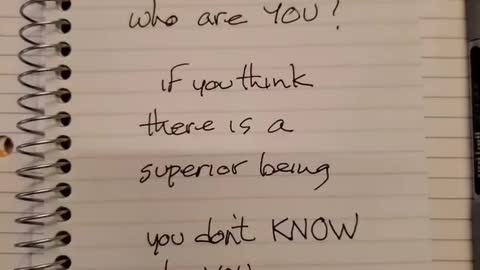 who are YOU?
if you think
there is a
superior being
you don't KNOW